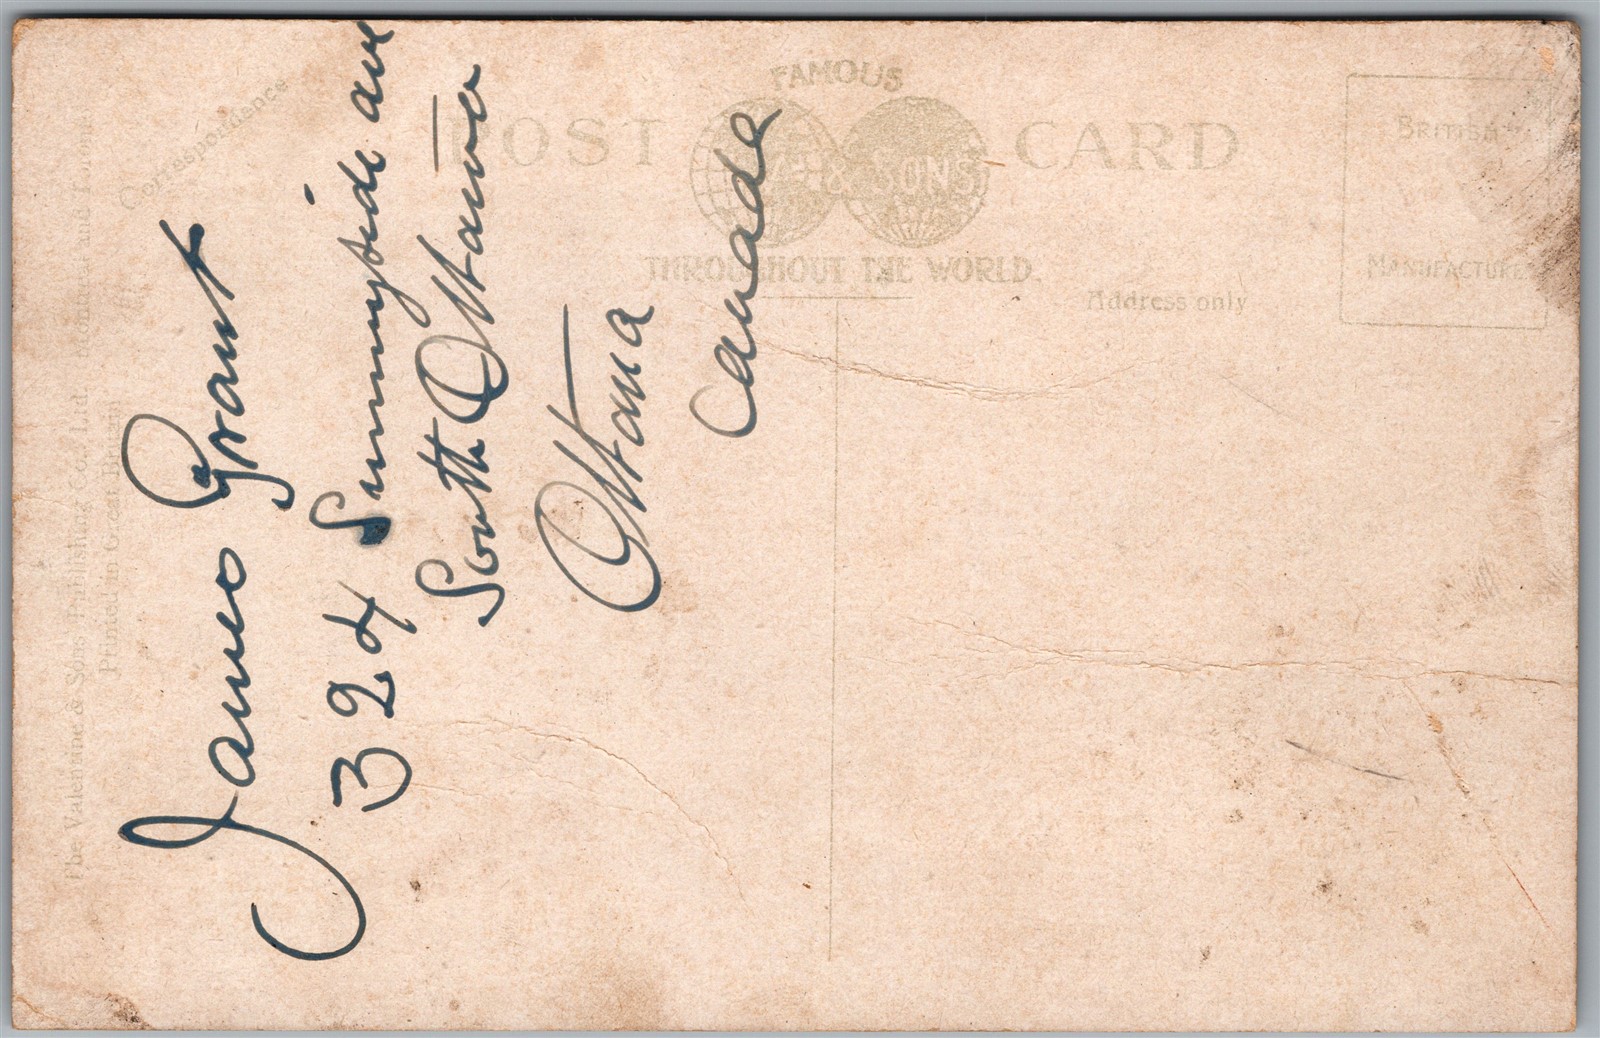 James Grant
324 Sunnyside ave
South Ottawa
Ottawa
Canada
FAMOUS
POST CARD
& SONS
THROUGHOUT THE WORLD.
Correspondence
Address only
BRITISH
MANUFACTURE
The Valentine & Sons Publishing Co., Ltd. Montreal and London
Printed in Great Britain